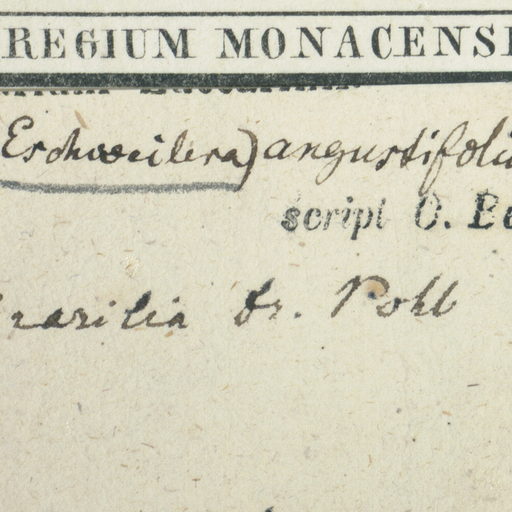 REGIUM MONACENSE
Eschweilera) angustifoli
script O. Be
Brasilia Dr. Pohl